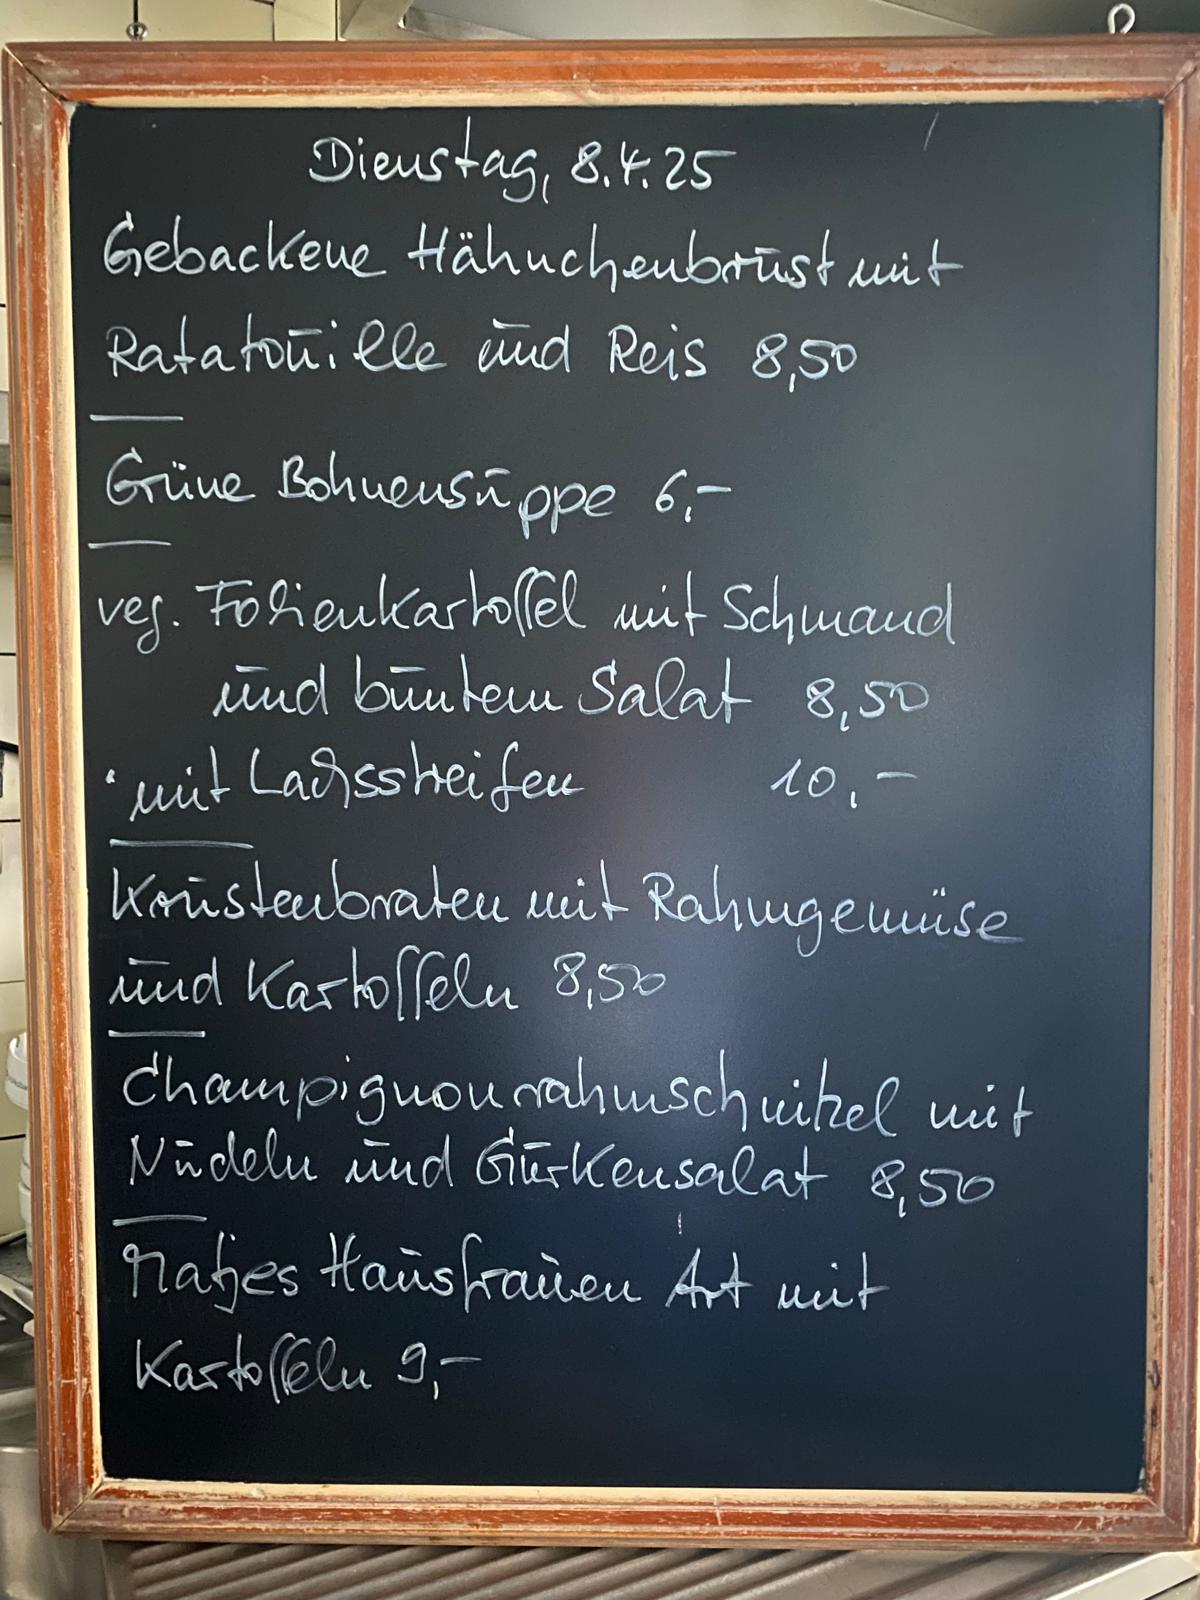 Dienstag, 8.4.25
Gebackene Hähnchenbrust mit
Ratatouille und Reis 8,50
Grüne Bohnensuppe 6,-
veg. Folienkartoffel mit Schmand
und buntem Salat 8,50
mit Lachsstreifen 10,-
Krustenbraten mit Rahmgemüse
und Kartoffeln 8,50
Champignonrahmschnitzel mit
Nudeln und Gurkensalat 8,50
Matjes Hausfrauen Art mit
Kartoffeln 9,-